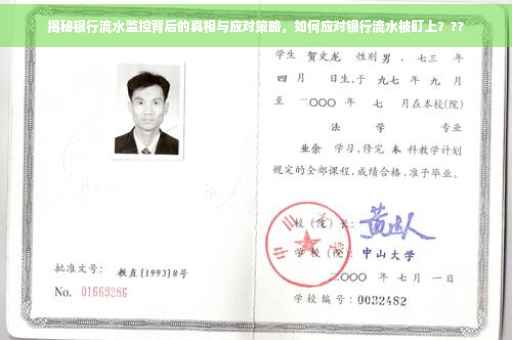 揭秘银行流水监控背后的真相与应对策略，如何应对银行流水被盯上？??
学生 贺文龙 性别 男，七三 年
四 月 日生，于 九七 年 九 月
至 二〇〇〇 年 七 月在本校(院)
法 学 专业
业余 学习，修完 本 科教学计划
规定的全部课程，成绩合格，准予毕业。
校（院）长：
学校（院）：中山大学
二〇〇〇 年 七 月 一 日
学校编号：0032482
批准文号： 教直[1993]8号
No. 01669286